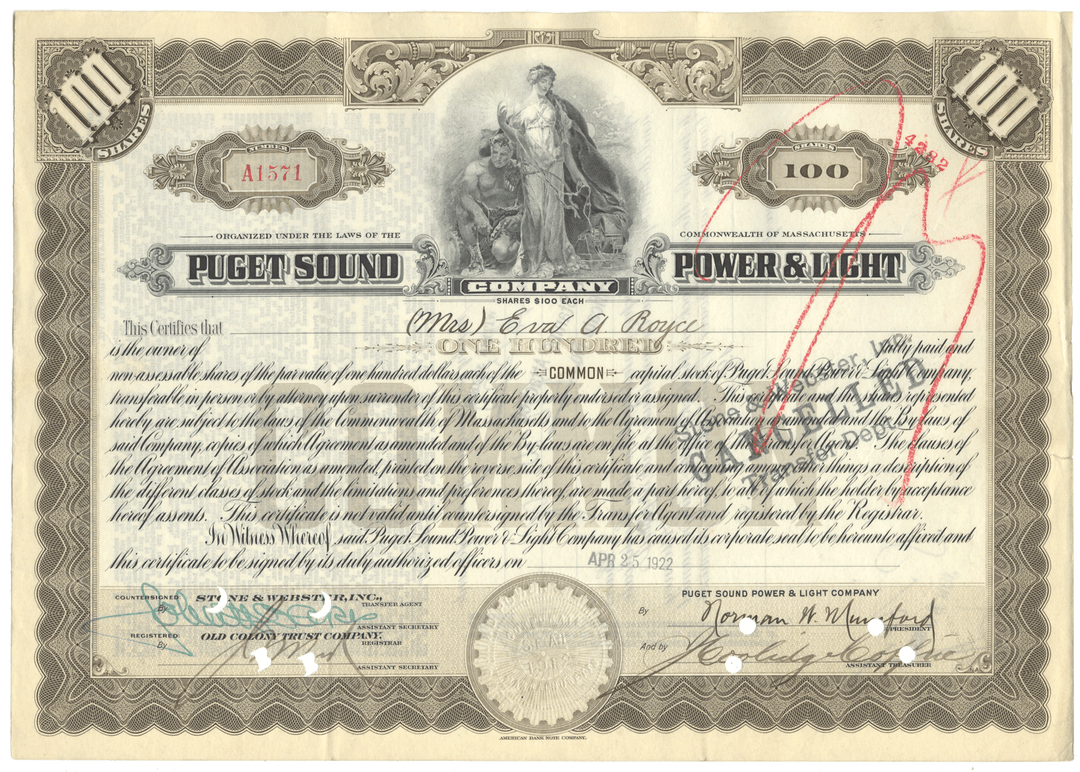 100 SHARES
100 SHARES
NUMBER
A1571
SHARES
100
4282
ORGANIZED UNDER THE LAWS OF THE
COMMONWEALTH OF MASSACHUSETTS
PUGET SOUND POWER & LIGHT
COMPANY
SHARES $100 EACH
This Certifies that (Mrs) Eva A Royce
is the owner of ONE HUNDRED fully paid and
non-assessable shares of the par value of one hundred dollars each of the COMMON capital stock of Puget Sound Power & Light Company,
transferable in person or by attorney upon surrender of this certificate properly endorsed or assigned. This certificate and the shares represented
hereby are subject to the laws of the Commonwealth of Massachusetts and to the Agreement of Association as amended and the By-laws of
said Company, copies of which Agreement as amended and of the By-laws are on file at the office of the Transfer Agent. The clauses of
the Agreement of Association as amended, printed on the reverse side of this certificate and containing among other things a description of
the different classes of stock and the limitations and preferences thereof, are made a part hereof, to all of which the holder by acceptance
hereof assents. This certificate is not valid until countersigned by the Transfer Agent and registered by the Registrar.
In Witness Whereof, said Puget Sound Power & Light Company has caused its corporate seal to be hereunto affixed and
this certificate to be signed by its duly authorized officers on APR 25 1922
COMMON
Stone & Webster, Inc.
CANCELLED
Transfer Dept.
COUNTERSIGNED
STONE & WEBSTER, INC.,
By
TRANSFER AGENT
ASSISTANT SECRETARY
REGISTERED:
OLD COLONY TRUST COMPANY,
By
REGISTRAR
ASSISTANT SECRETARY
PUGET SOUND POWER & LIGHT COMPANY
By Norman W. Mumford
PRESIDENT
And by
ASSISTANT TREASURER
1912
AMERICAN BANK NOTE COMPANY.